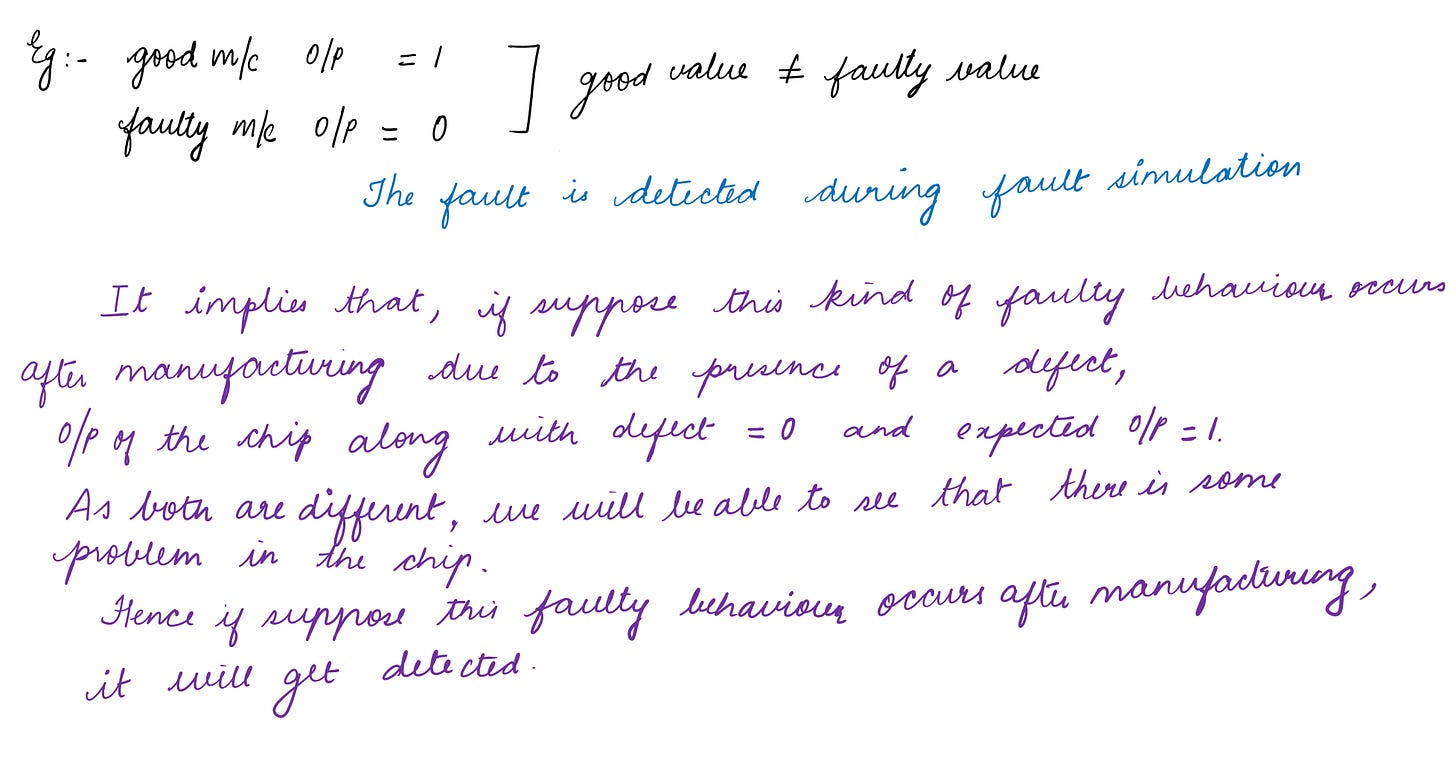 Eg:- good m/c o/p = 1 ] good value ≠ faulty value
faulty m/c o/p = 0
The fault is detected during fault simulation
It implies that, if suppose this kind of faulty behaviour occurs
after manufacturing due to the presence of a defect,
o/p of the chip along with defect = 0 and expected o/p = 1.
As both are different, we will be able to see that there is some
problem in the chip.
Hence if suppose this faulty behaviour occurs after manufacturing,
it will get detected.